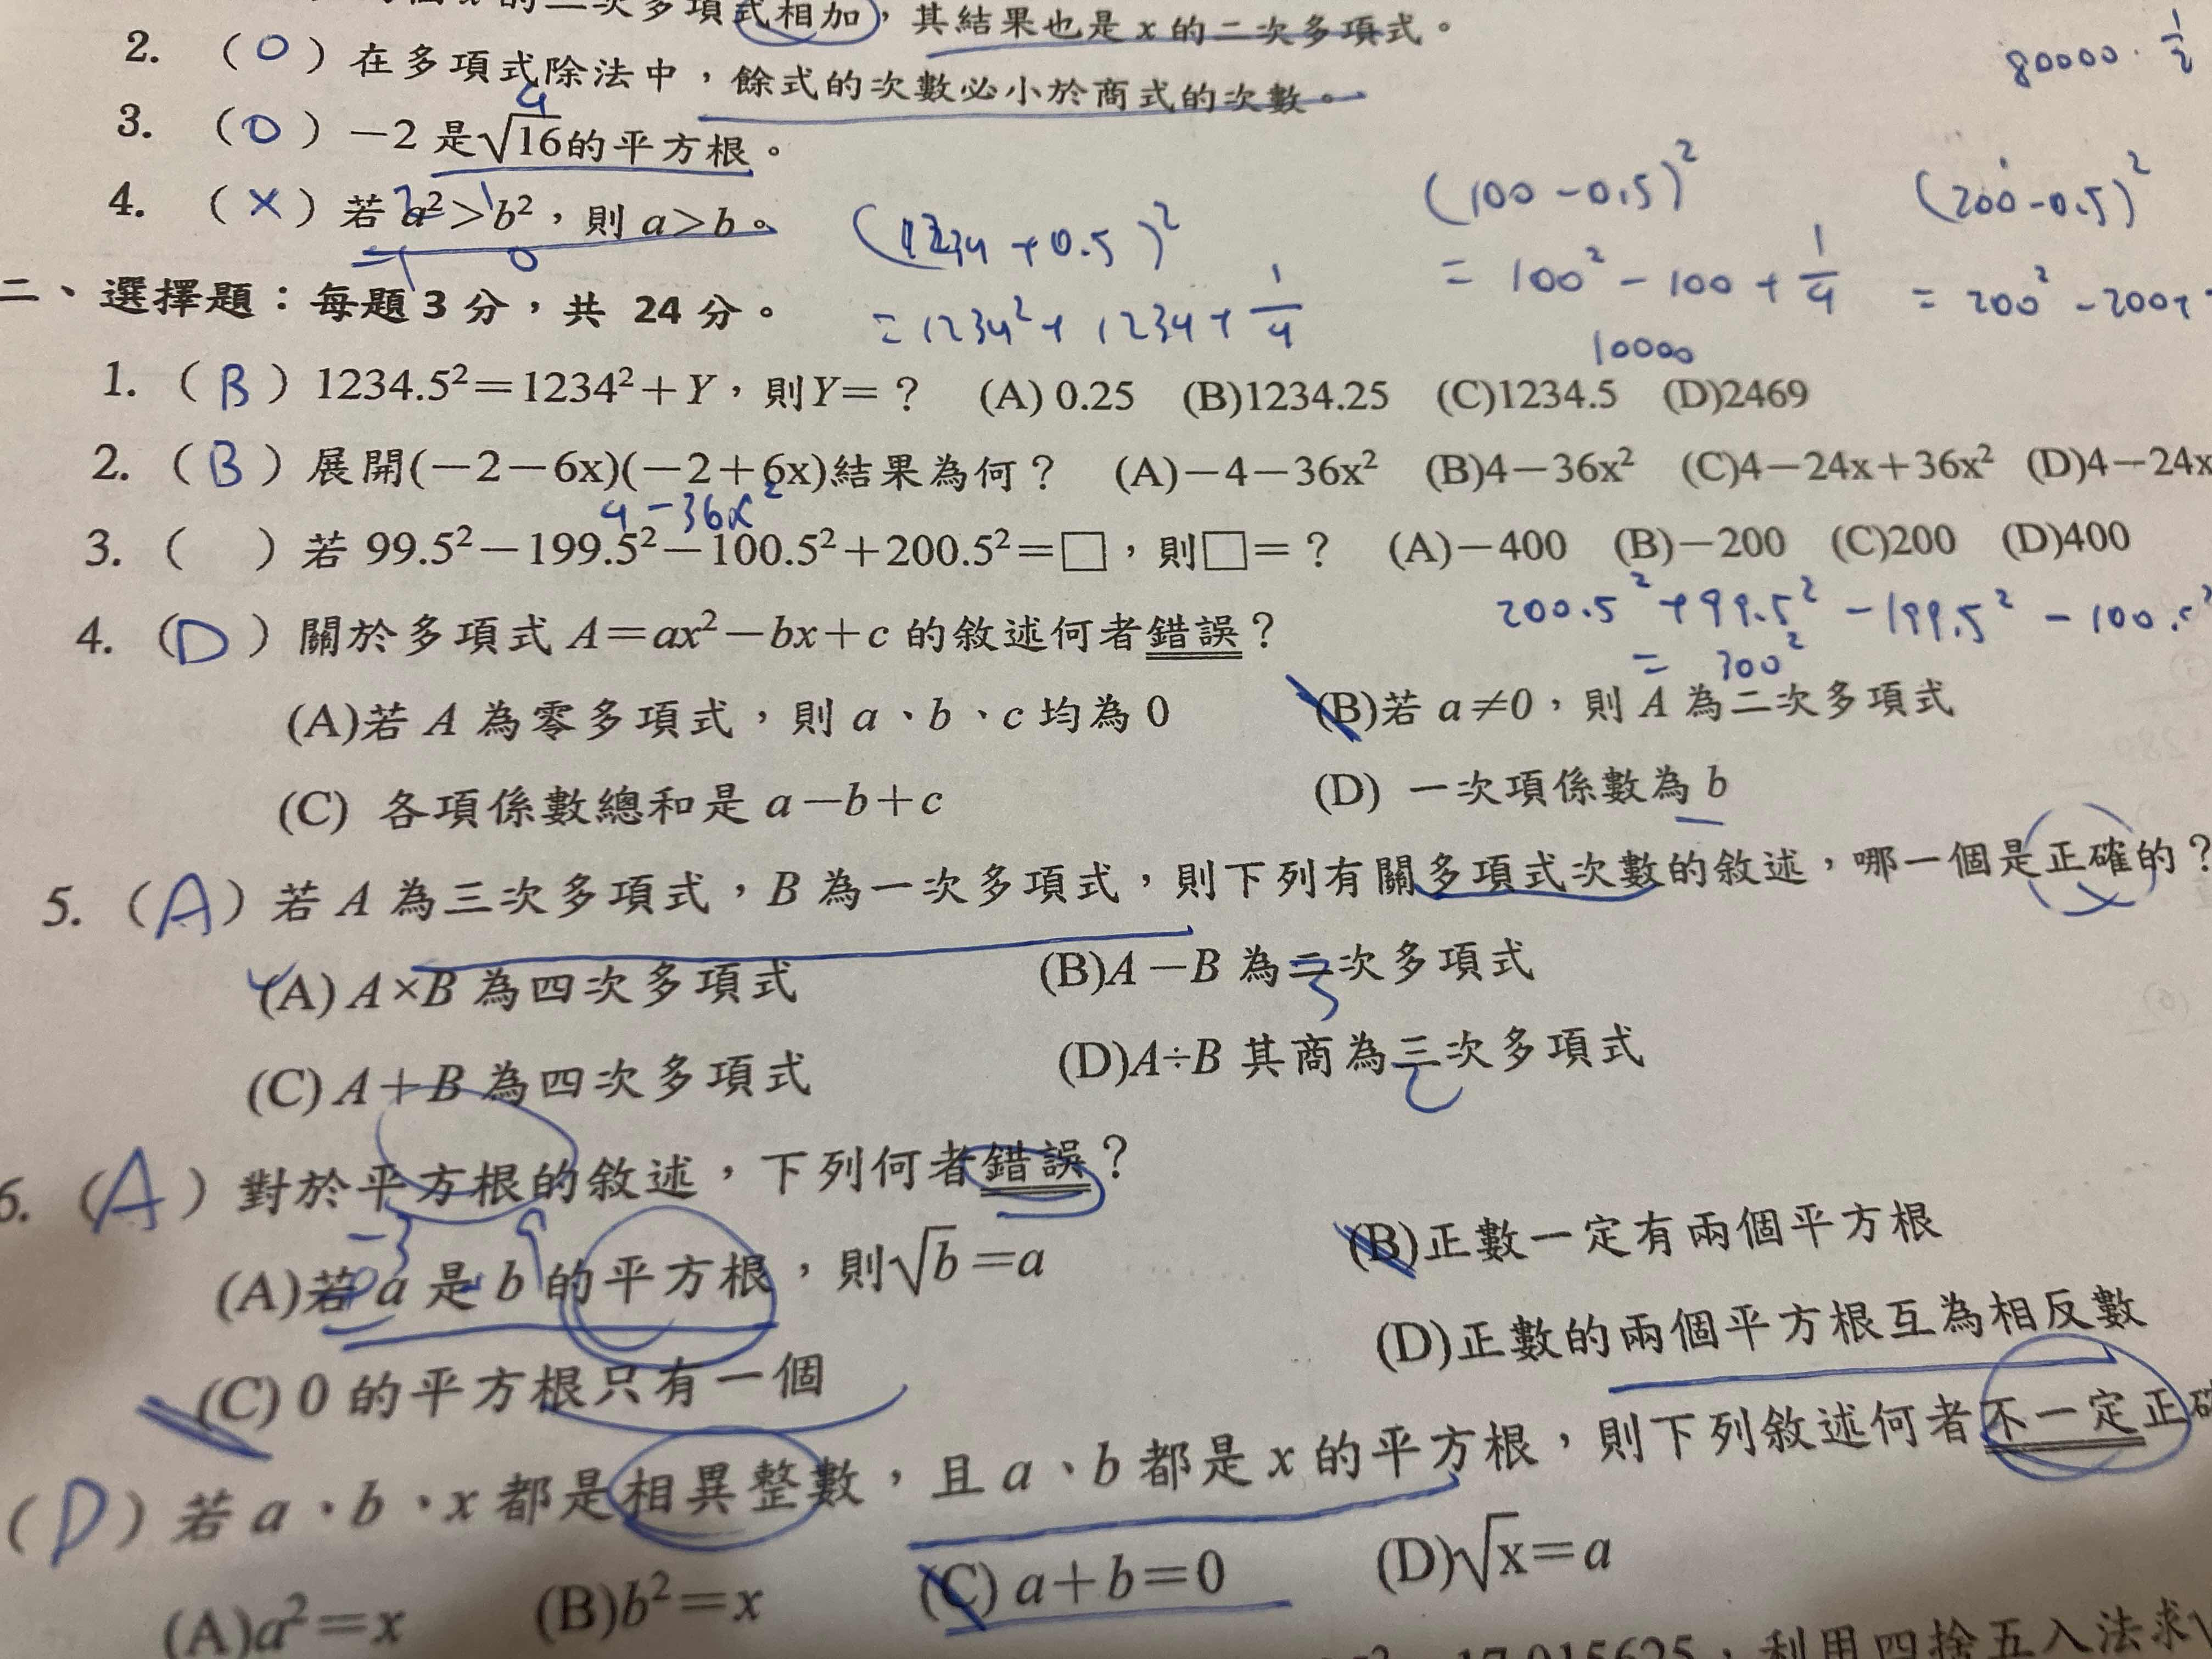 二次多項式相加，其結果也是 x 的二次多項式。
80000 · 1/2
2. （O）在多項式除法中，餘式的次數必小於商式的次數。
4
3. （O）－2 是√16的平方根。
4. （X）若 a²＞b²，則 a＞b。
(1234 + 0.5)²
= 1234² + 1234 + 1/4
(100 - 0.5)²
= 100² - 100 + 1/4
10000
(200 - 0.5)²
= 200² - 200 +
二、選擇題：每題 3 分，共 24 分。
1. （B）1234.5²＝1234²＋Y，則Y＝？ (A) 0.25 (B)1234.25 (C)1234.5 (D)2469
2. （B）展開(－2－6x)(－2＋6x)結果為何？ (A)－4－36x² (B)4－36x² (C)4－24x＋36x² (D)4－24x
4 - 36x²
3. （ ）若 99.5²－199.5²－100.5²＋200.5²＝□，則□＝？ (A)－400 (B)－200 (C)200 (D)400
200.5² + 99.5² - 199.5² - 100.5²
= 300²
4. （D）關於多項式 A＝ax²－bx＋c 的敘述何者錯誤？
(A)若 A 為零多項式，則 a、b、c 均為 0 (B)若 a≠0，則 A 為二次多項式
(C) 各項係數總和是 a－b＋c (D) 一次項係數為 b
5. （A）若 A 為三次多項式，B 為一次多項式，則下列有關多項式次數的敘述，哪一個是正確的？
(A) A×B 為四次多項式 (B)A－B 為二次多項式
3
(C) A＋B 為四次多項式 (D)A÷B 其商為三次多項式
6. （A）對於平方根的敘述，下列何者錯誤？
-3 9
(A)若 a 是 b 的平方根，則√b＝a (B)正數一定有兩個平方根
(C) 0 的平方根只有一個 (D)正數的兩個平方根互為相反數
（D）若 a、b、x 都是相異整數，且 a、b 都是 x 的平方根，則下列敘述何者不一定正確
(A)a²＝x (B)b²＝x (C) a＋b＝0 (D)√x＝a
17.015625，利用四捨五入法求√